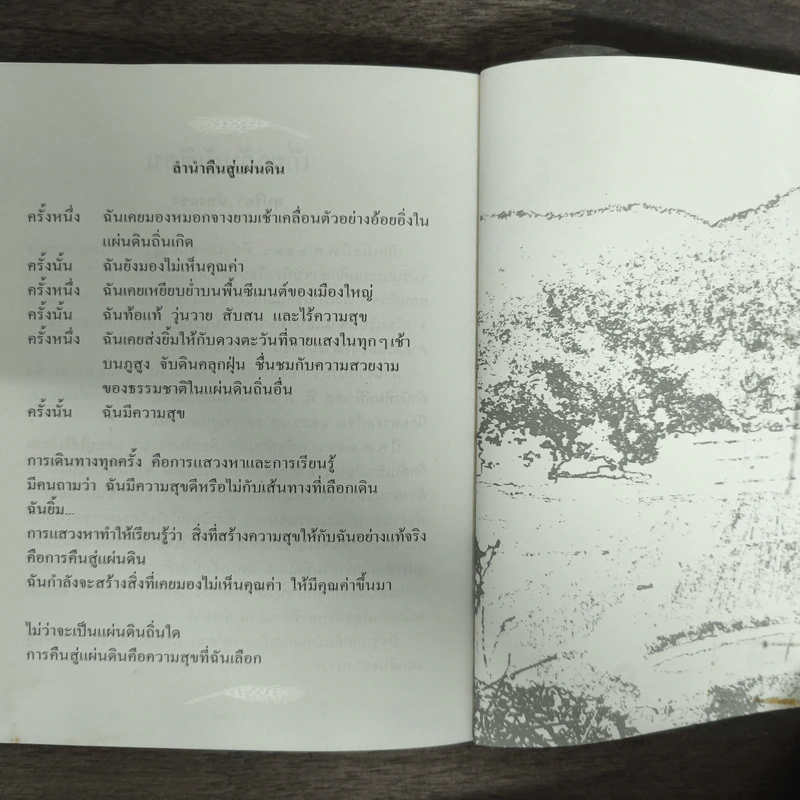 ลำนำคืนสู่แผ่นดิน
ครั้งหนึ่ง ฉันเคยมองหมอกจางยามเช้าเคลื่อนตัวอย่างอ้อยอิ่งใน
แผ่นดินถิ่นเกิด
ครั้งนั้น ฉันยังมองไม่เห็นคุณค่า
ครั้งหนึ่ง ฉันเคยเหยียบย่ำบนพื้นซีเมนต์ของเมืองใหญ่
ครั้งนั้น ฉันท้อแท้ วุ่นวาย สับสน และไร้ความสุข
ครั้งหนึ่ง ฉันเคยส่งยิ้มให้กับดวงตะวันที่ฉายแสงในทุกๆเช้า
บนภูสูง จับดินคลุกฝุ่น ชื่นชมกับความสวยงาม
ของธรรมชาติในแผ่นดินถิ่นอื่น
ครั้งนั้น ฉันมีความสุข
การเดินทางทุกครั้ง คือการแสวงหาและการเรียนรู้
มีคนถามว่า ฉันมีความสุขดีหรือไม่กับเส้นทางที่เลือกเดิน
ฉันยิ้ม...
การแสวงหาทำให้เรียนรู้ว่า สิ่งที่สร้างความสุขให้กับฉันอย่างแท้จริง
คือการคืนสู่แผ่นดิน
ฉันกำลังจะสร้างสิ่งที่เคยมองไม่เห็นคุณค่า ให้มีคุณค่าขึ้นมา
ไม่ว่าจะเป็นแผ่นดินถิ่นใด
การคืนสู่แผ่นดินคือความสุขที่ฉันเลือก